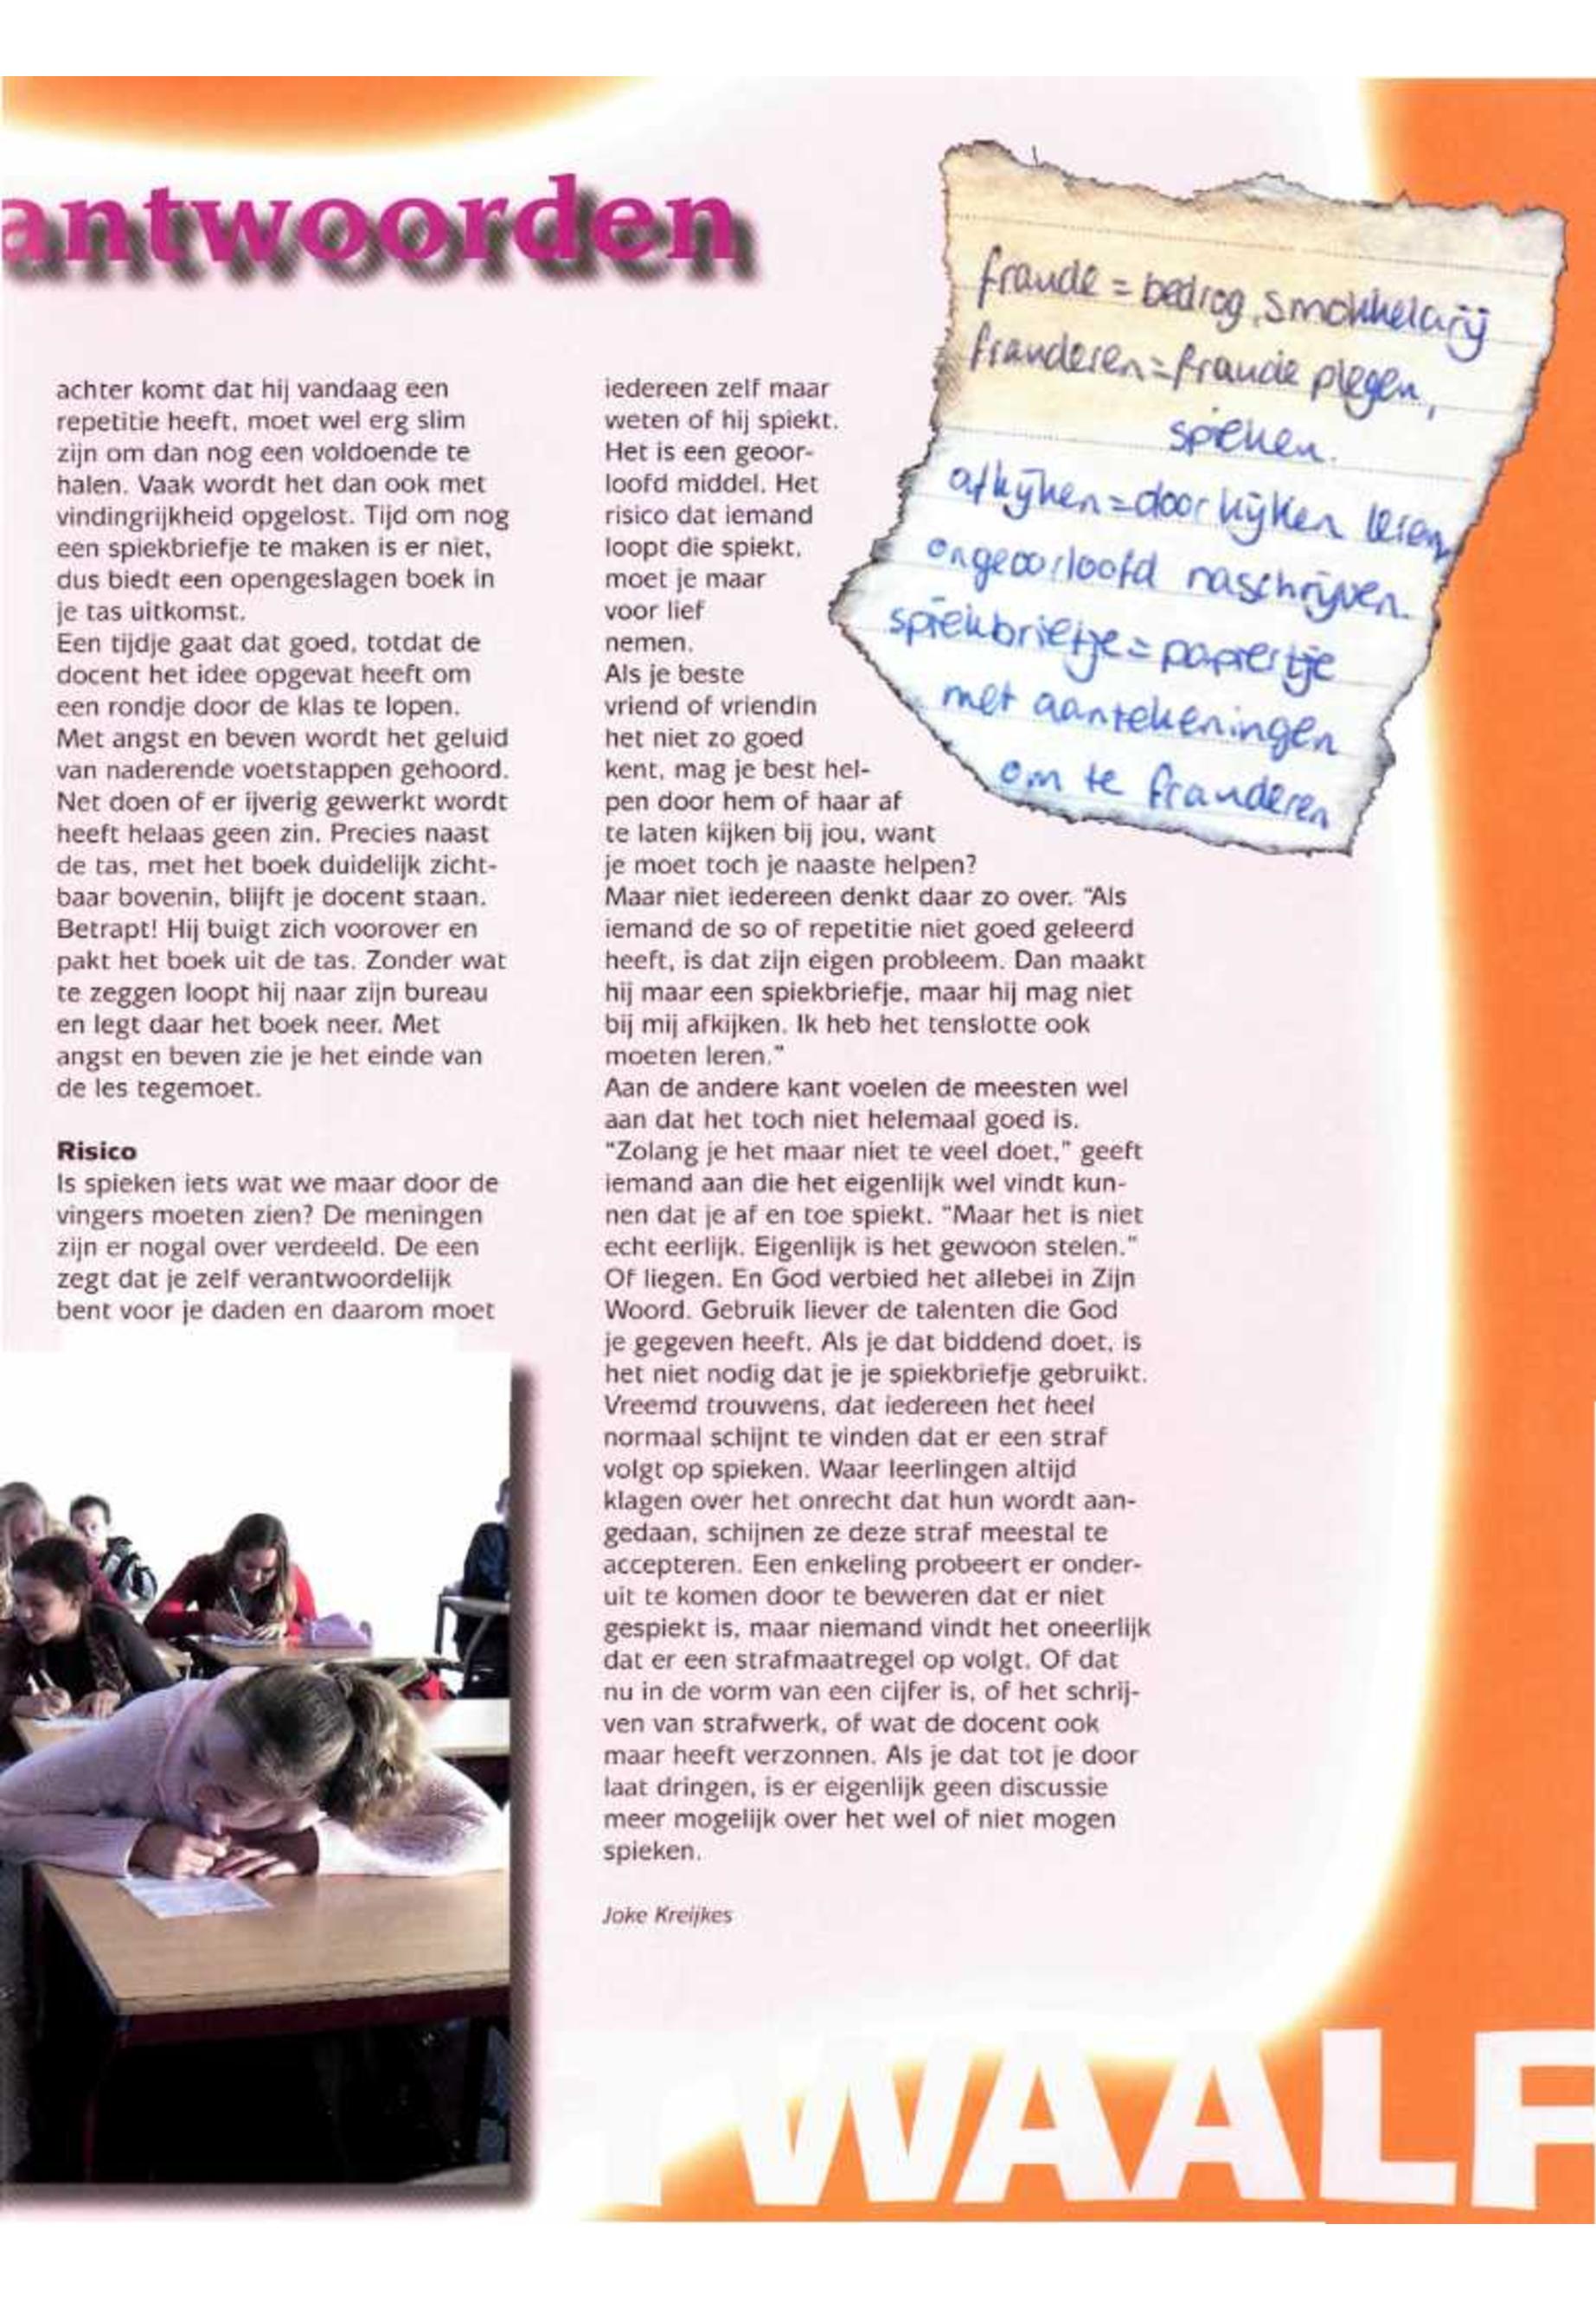 antwoorden
achter komt dat hij vandaag een
repetitie heeft, moet wel erg slim
zijn om dan nog een voldoende te
halen. Vaak wordt het dan ook met
vindingrijkheid opgelost. Tijd om nog
een spiekbriefje te maken is er niet,
dus biedt een opengeslagen boek in
je tas uitkomst.
Een tijdje gaat dat goed, totdat de
docent het idee opgevat heeft om
een rondje door de klas te lopen.
Met angst en beven wordt het geluid
van naderende voetstappen gehoord.
Net doen of er ijverig gewerkt wordt
heeft helaas geen zin. Precies naast
de tas, met het boek duidelijk zicht-
baar bovenin, blijft je docent staan.
Betrapt! Hij buigt zich voorover en
pakt het boek uit de tas. Zonder wat
te zeggen loopt hij naar zijn bureau
en legt daar het boek neer. Met
angst en beven zie je het einde van
de les tegemoet.
Risico
Is spieken iets wat we maar door de
vingers moeten zien? De meningen
zijn er nogal over verdeeld. De een
zegt dat je zelf verantwoordelijk
bent voor je daden en daarom moet
iedereen zelf maar
weten of hij spiekt.
Het is een geoor-
loofd middel. Het
risico dat iemand
loopt die spiekt,
moet je maar
voor lief
nemen.
Als je beste
vriend of vriendin
het niet zo goed
kent, mag je best hel-
pen door hem of haar af
te laten kijken bij jou, want
je moet toch je naaste helpen?
Maar niet iedereen denkt daar zo over. "Als
iemand de so of repetitie niet goed geleerd
heeft, is dat zijn eigen probleem. Dan maakt
hij maar een spiekbriefje, maar hij mag niet
bij mij afkijken. Ik heb het tenslotte ook
moeten leren."
Aan de andere kant voelen de meesten wel
aan dat het toch niet helemaal goed is.
"Zolang je het maar niet te veel doet," geeft
iemand aan die het eigenlijk wel vindt kun-
nen dat je af en toe spiekt. "Maar het is niet
echt eerlijk. Eigenlijk is het gewoon stelen."
Of liegen. En God verbied het allebei in Zijn
Woord. Gebruik liever de talenten die God
je gegeven heeft. Als je dat biddend doet, is
het niet nodig dat je je spiekbriefje gebruikt.
Vreemd trouwens, dat iedereen het heel
normaal schijnt te vinden dat er een straf
volgt op spieken. Waar leerlingen altijd
klagen over het onrecht dat hun wordt aan-
gedaan, schijnen ze deze straf meestal te
accepteren. Een enkeling probeert er onder-
uit te komen door te beweren dat er niet
gespiekt is, maar niemand vindt het oneerlijk
dat er een strafmaatregel op volgt. Of dat
nu in de vorm van een cijfer is, of het schrij-
ven van strafwerk, of wat de docent ook
maar heeft verzonnen. Als je dat tot je door
laat dringen, is er eigenlijk geen discussie
meer mogelijk over het wel of niet mogen
spieken.
Joke Kreijkes
fraude = bedrog, smokkelarij
frauderen = fraude plegen,
spieken.
afkijken = door kijken leren,
ongeoorloofd naschrijven.
spiekbriefje = papiertje
met aantekeningen
om te frauderen
TWAALF